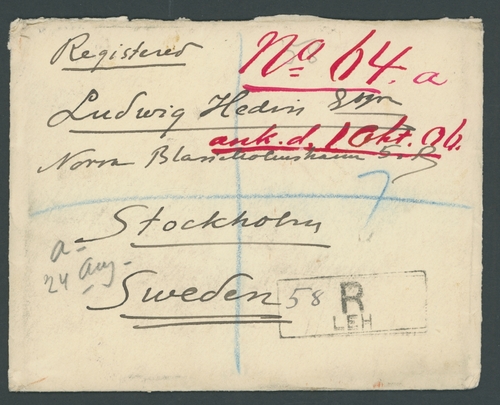 Registered
No 64. a
Ludwig Hedin Esqr
ank. d. 1 Okt. 06.
Norra Blasieholmshamn 5.B
7
Stockholm
a-
24 Aug-
Sweden
58 R
LEH